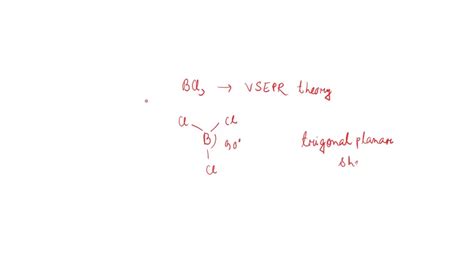 BCl3 → VSEPR theory
Cl Cl
B 90°
Cl
trigonal planar
sh